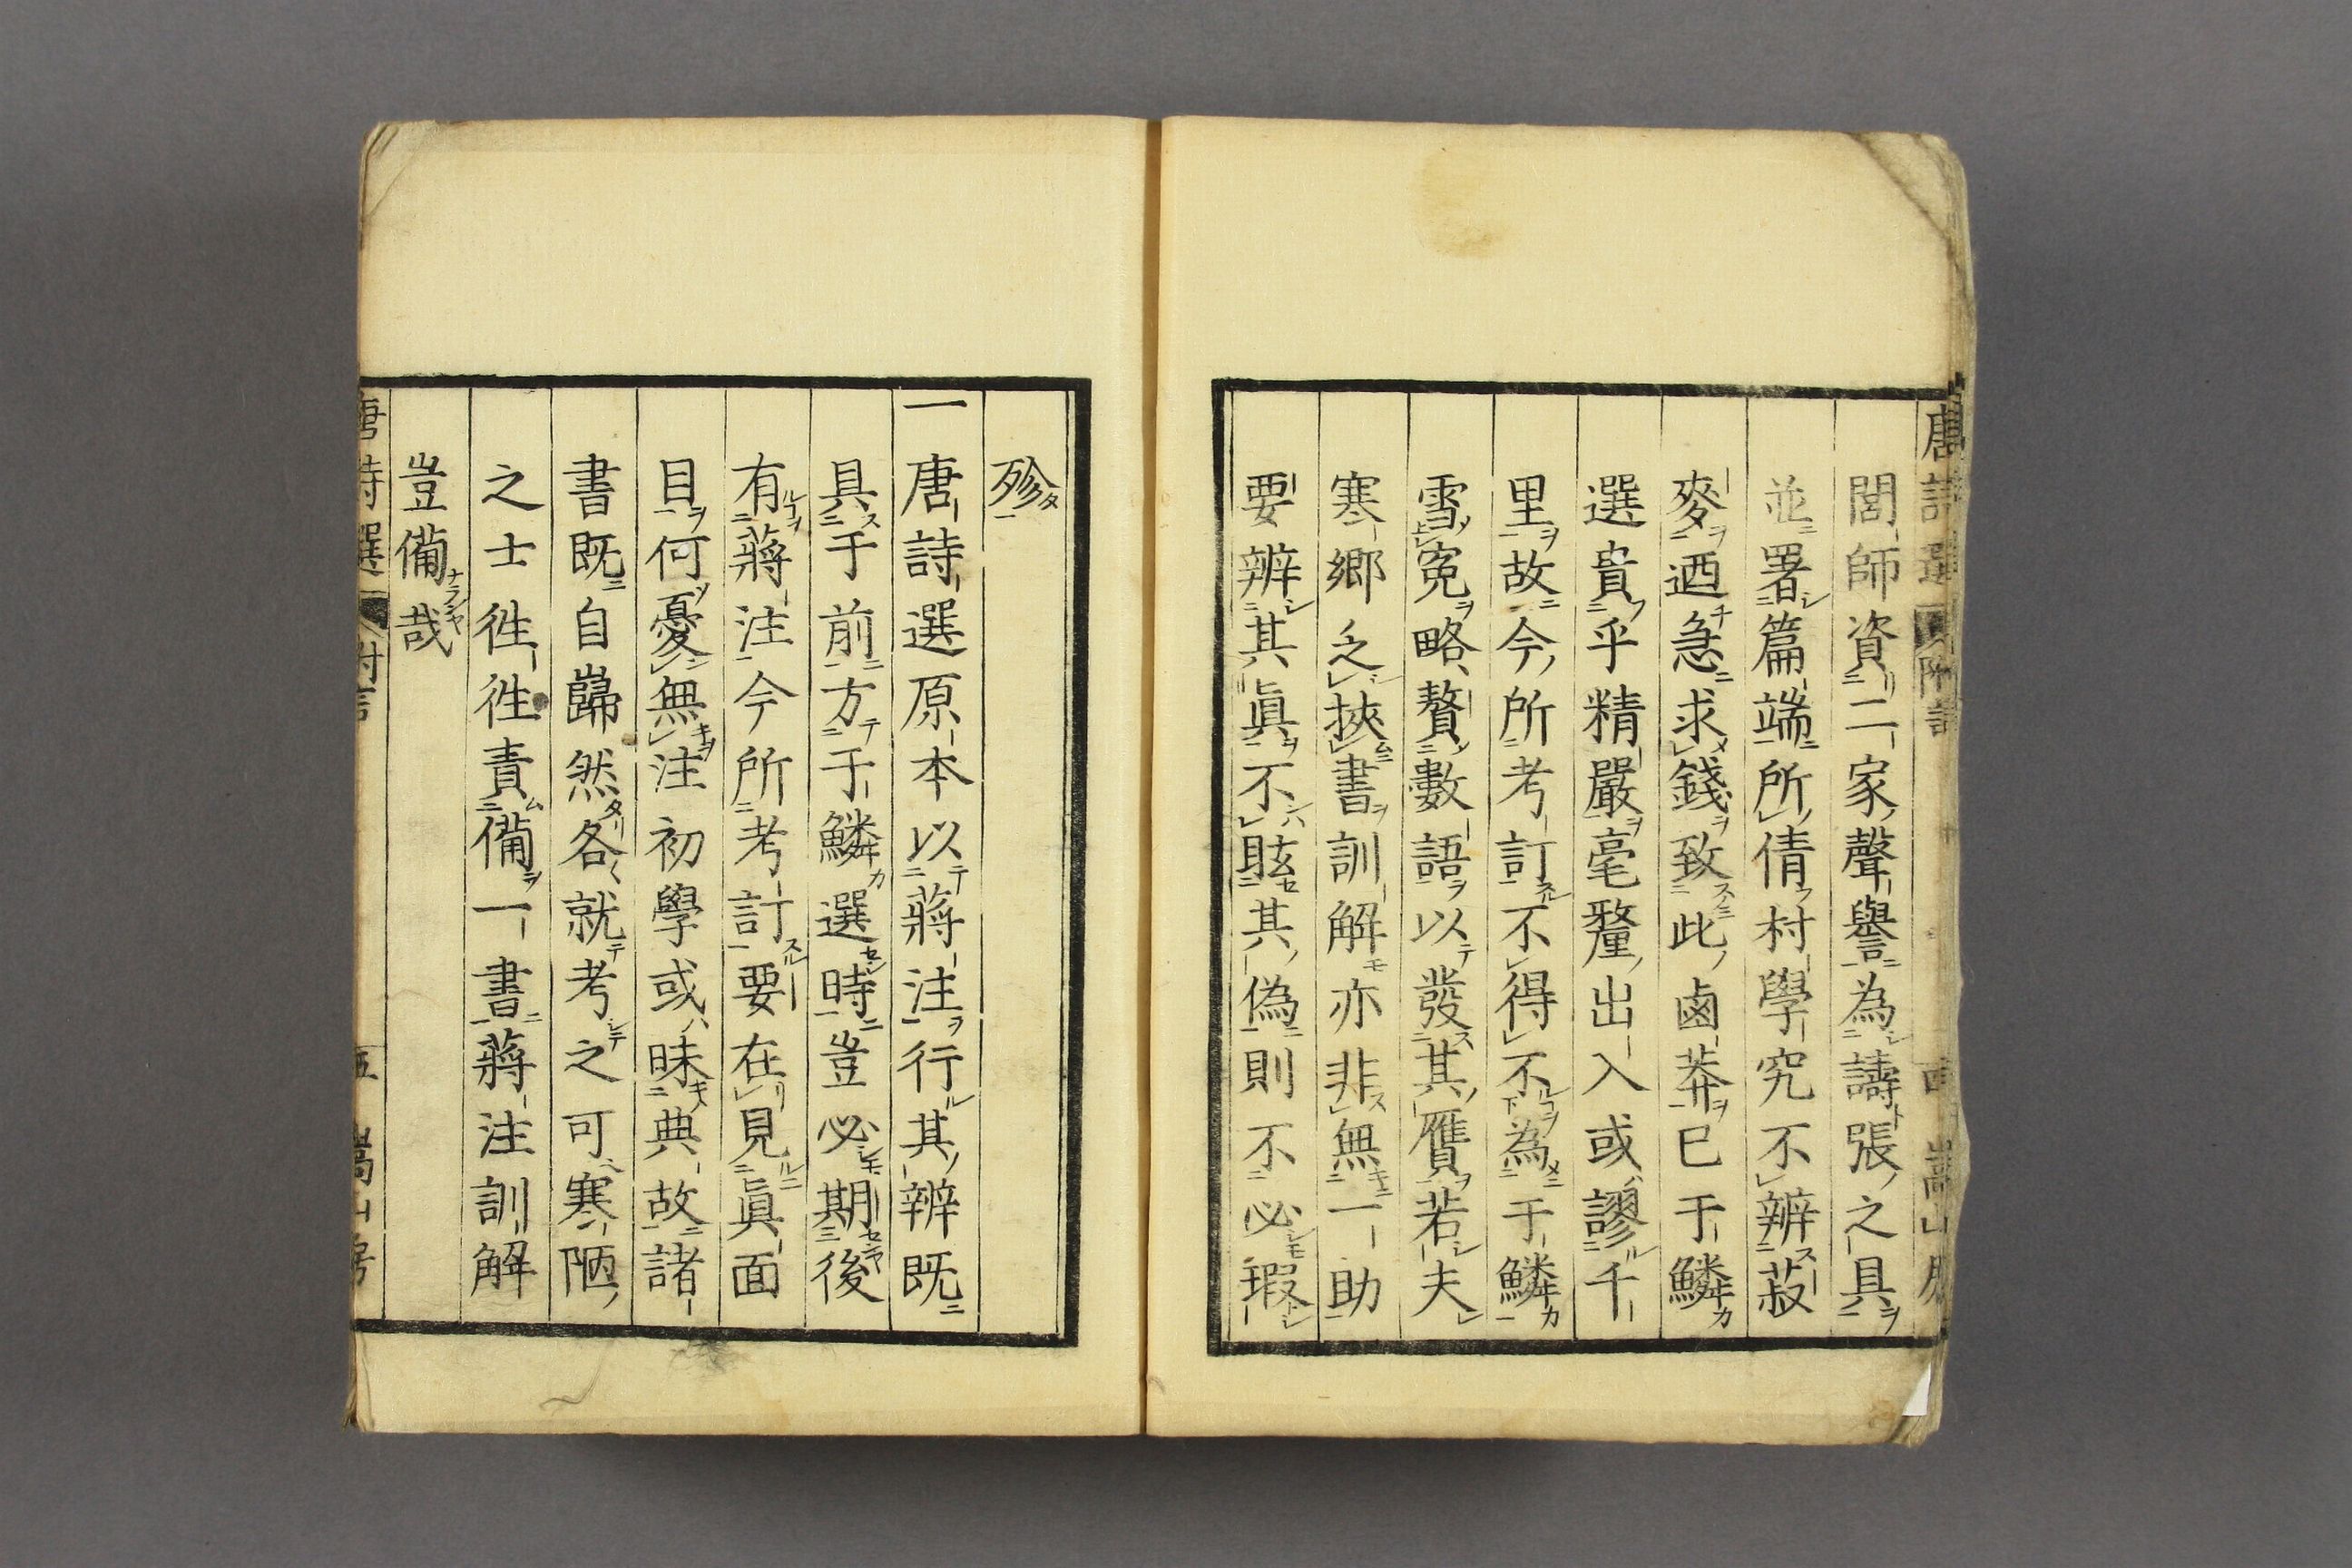 唐詩選 附言 四 嵩山房
閭師資二家聲譽為譸張之具
並署篇端所倩村學究不辨菽
麥迺急求錢致此鹵莽已于鱗
選貴乎精嚴毫釐出入或謬千
里故今所考訂不得不為于鱗
雪冤略贅數語以發其贋若夫
寒鄉乏挾書訓解亦非無一助
要辨其眞不眩其偽則不必瑕
殄
一唐詩選原本以蔣注行其辨既
具于前方于鱗選時豈必期後
有蔣注今所考訂要在見眞面
目何憂無注初學或昧典故諸
書既自巋然各就考之可寒陋
之士徃徃責備一書蔣注訓解
豈備哉
唐詩選 附言 五 嵩山房